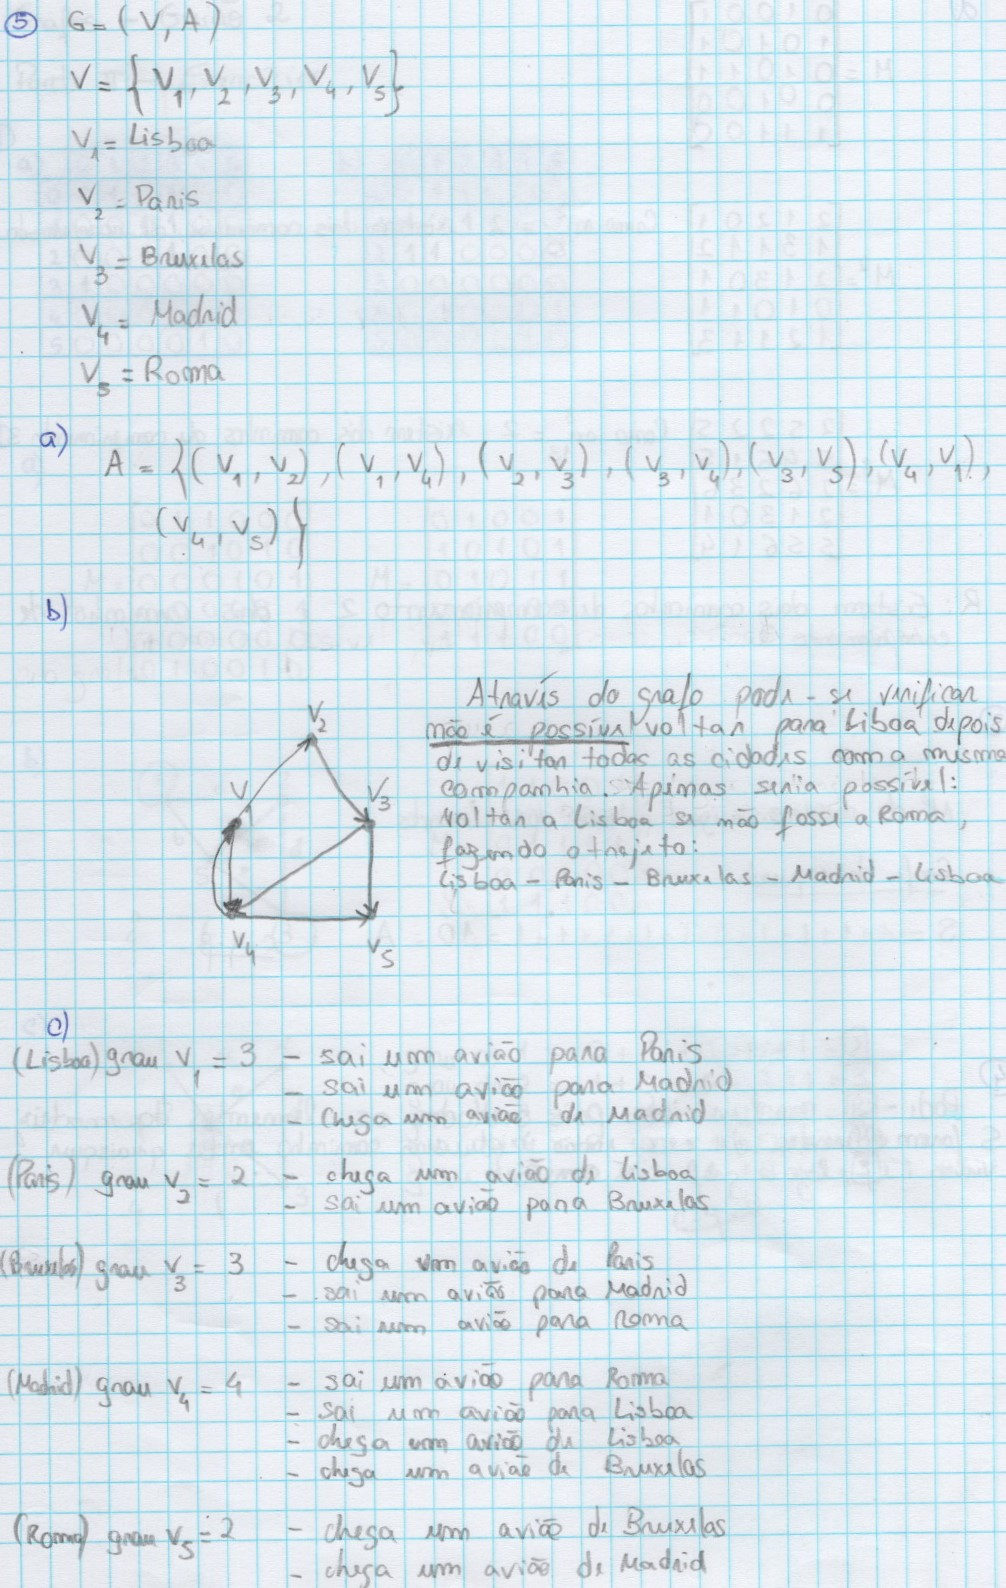 5 G = (V, A)
V = { V1, V2, V3, V4, V5 }
V1 = Lisboa
V2 = Paris
V3 = Bruxelas
V4 = Madrid
V5 = Roma
a)
A = {(V1, V2), (V1, V4), (V2, V3), (V3, V4), (V3, V5), (V4, V1),
(V4, V5)}
b)
Através do grafo pode-se verificar
não é possível voltar para Liboa depois
de visitar todas as cidades com a mesma
companhia. Apenas seria possível:
voltar a Lisboa se não fosse a Roma,
fazendo o trajeto:
Lisboa - Paris - Bruxelas - Madrid - Lisboa
V2
V1
V3
V4
V5
c)
(Lisboa) grau V1 = 3 - sai um avião para Paris
- sai um avião para Madrid
- chega um avião de Madrid
(Paris) grau V2 = 2 - chega um avião de Lisboa
- sai um avião para Bruxelas
(Bruxelas) grau V3 = 3 - chega um avião de Paris
- sai um avião para Madrid
- sai um avião para Roma
(Madrid) grau V4 = 4 - sai um avião para Roma
- sai um avião para Lisboa
- chega um avião de Lisboa
- chega um avião de Bruxelas
(Roma) grau V5 = 2 - chega um avião de Bruxelas
- chega um avião de Madrid